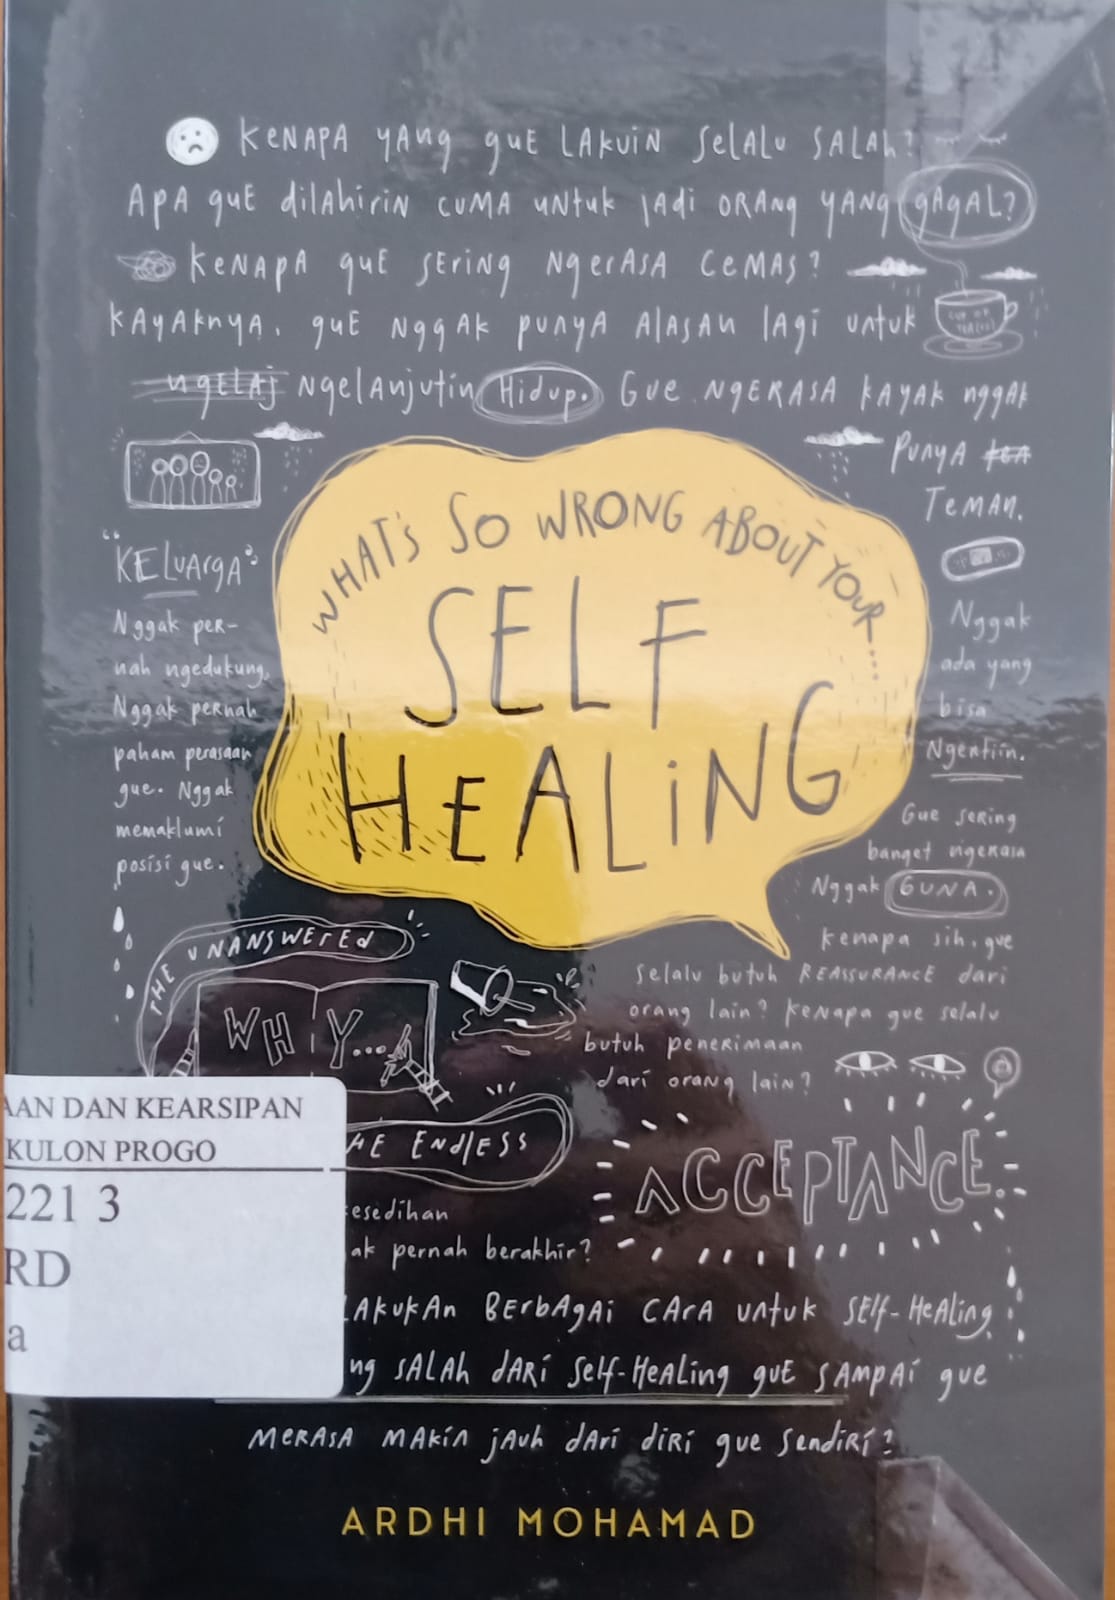 KENAPA YANG GUE LAKUIN SELALU SALAH?
APA GUE DILAHIRIN CUMA UNTUK JADI ORANG YANG GAGAL?
KENAPA GUE SERING NGERASA CEMAS?
KAYAKNYA, GUE NGGAK PUNYA ALASAN LAGI UNTUK
NGELAJ NGELANJUTIN HIDUP. GUE NGERASA KAYAK NGGAK
PUNYA
TEMAN.
WHAT'S SO WRONG ABOUT YOUR....
SELF
HEALING
"KELUARGA"
Nggak per-
nah ngedukung.
Nggak pernah
paham perasaan
gue. Nggak
memaklumi
posisi gue.
Nggak
ada yang
bisa
Ngertiin.
Gue sering
banget ngerasa
Nggak GUNA.
kenapa sih, gue
selalu butuh REASSURANCE dari
orang lain? Kenapa gue selalu
butuh penerimaan
dari orang lain?
THE UNANSWERED
WHY...
THE ENDLESS
ACCEPTANCE.
esedihan
ak pernah berakhir?
LAKUKAN BERBAGAI CARA UNTUK SELF-HEALING.
NG SALAH DARI SELF-HEALING GUE SAMPAI GUE
MERASA MAKIN JAUH DARI DIRI GUE SENDIRI?
ARDHI MOHAMAD
AAN DAN KEARSIPAN
KULON PROGO
221 3
RD
a